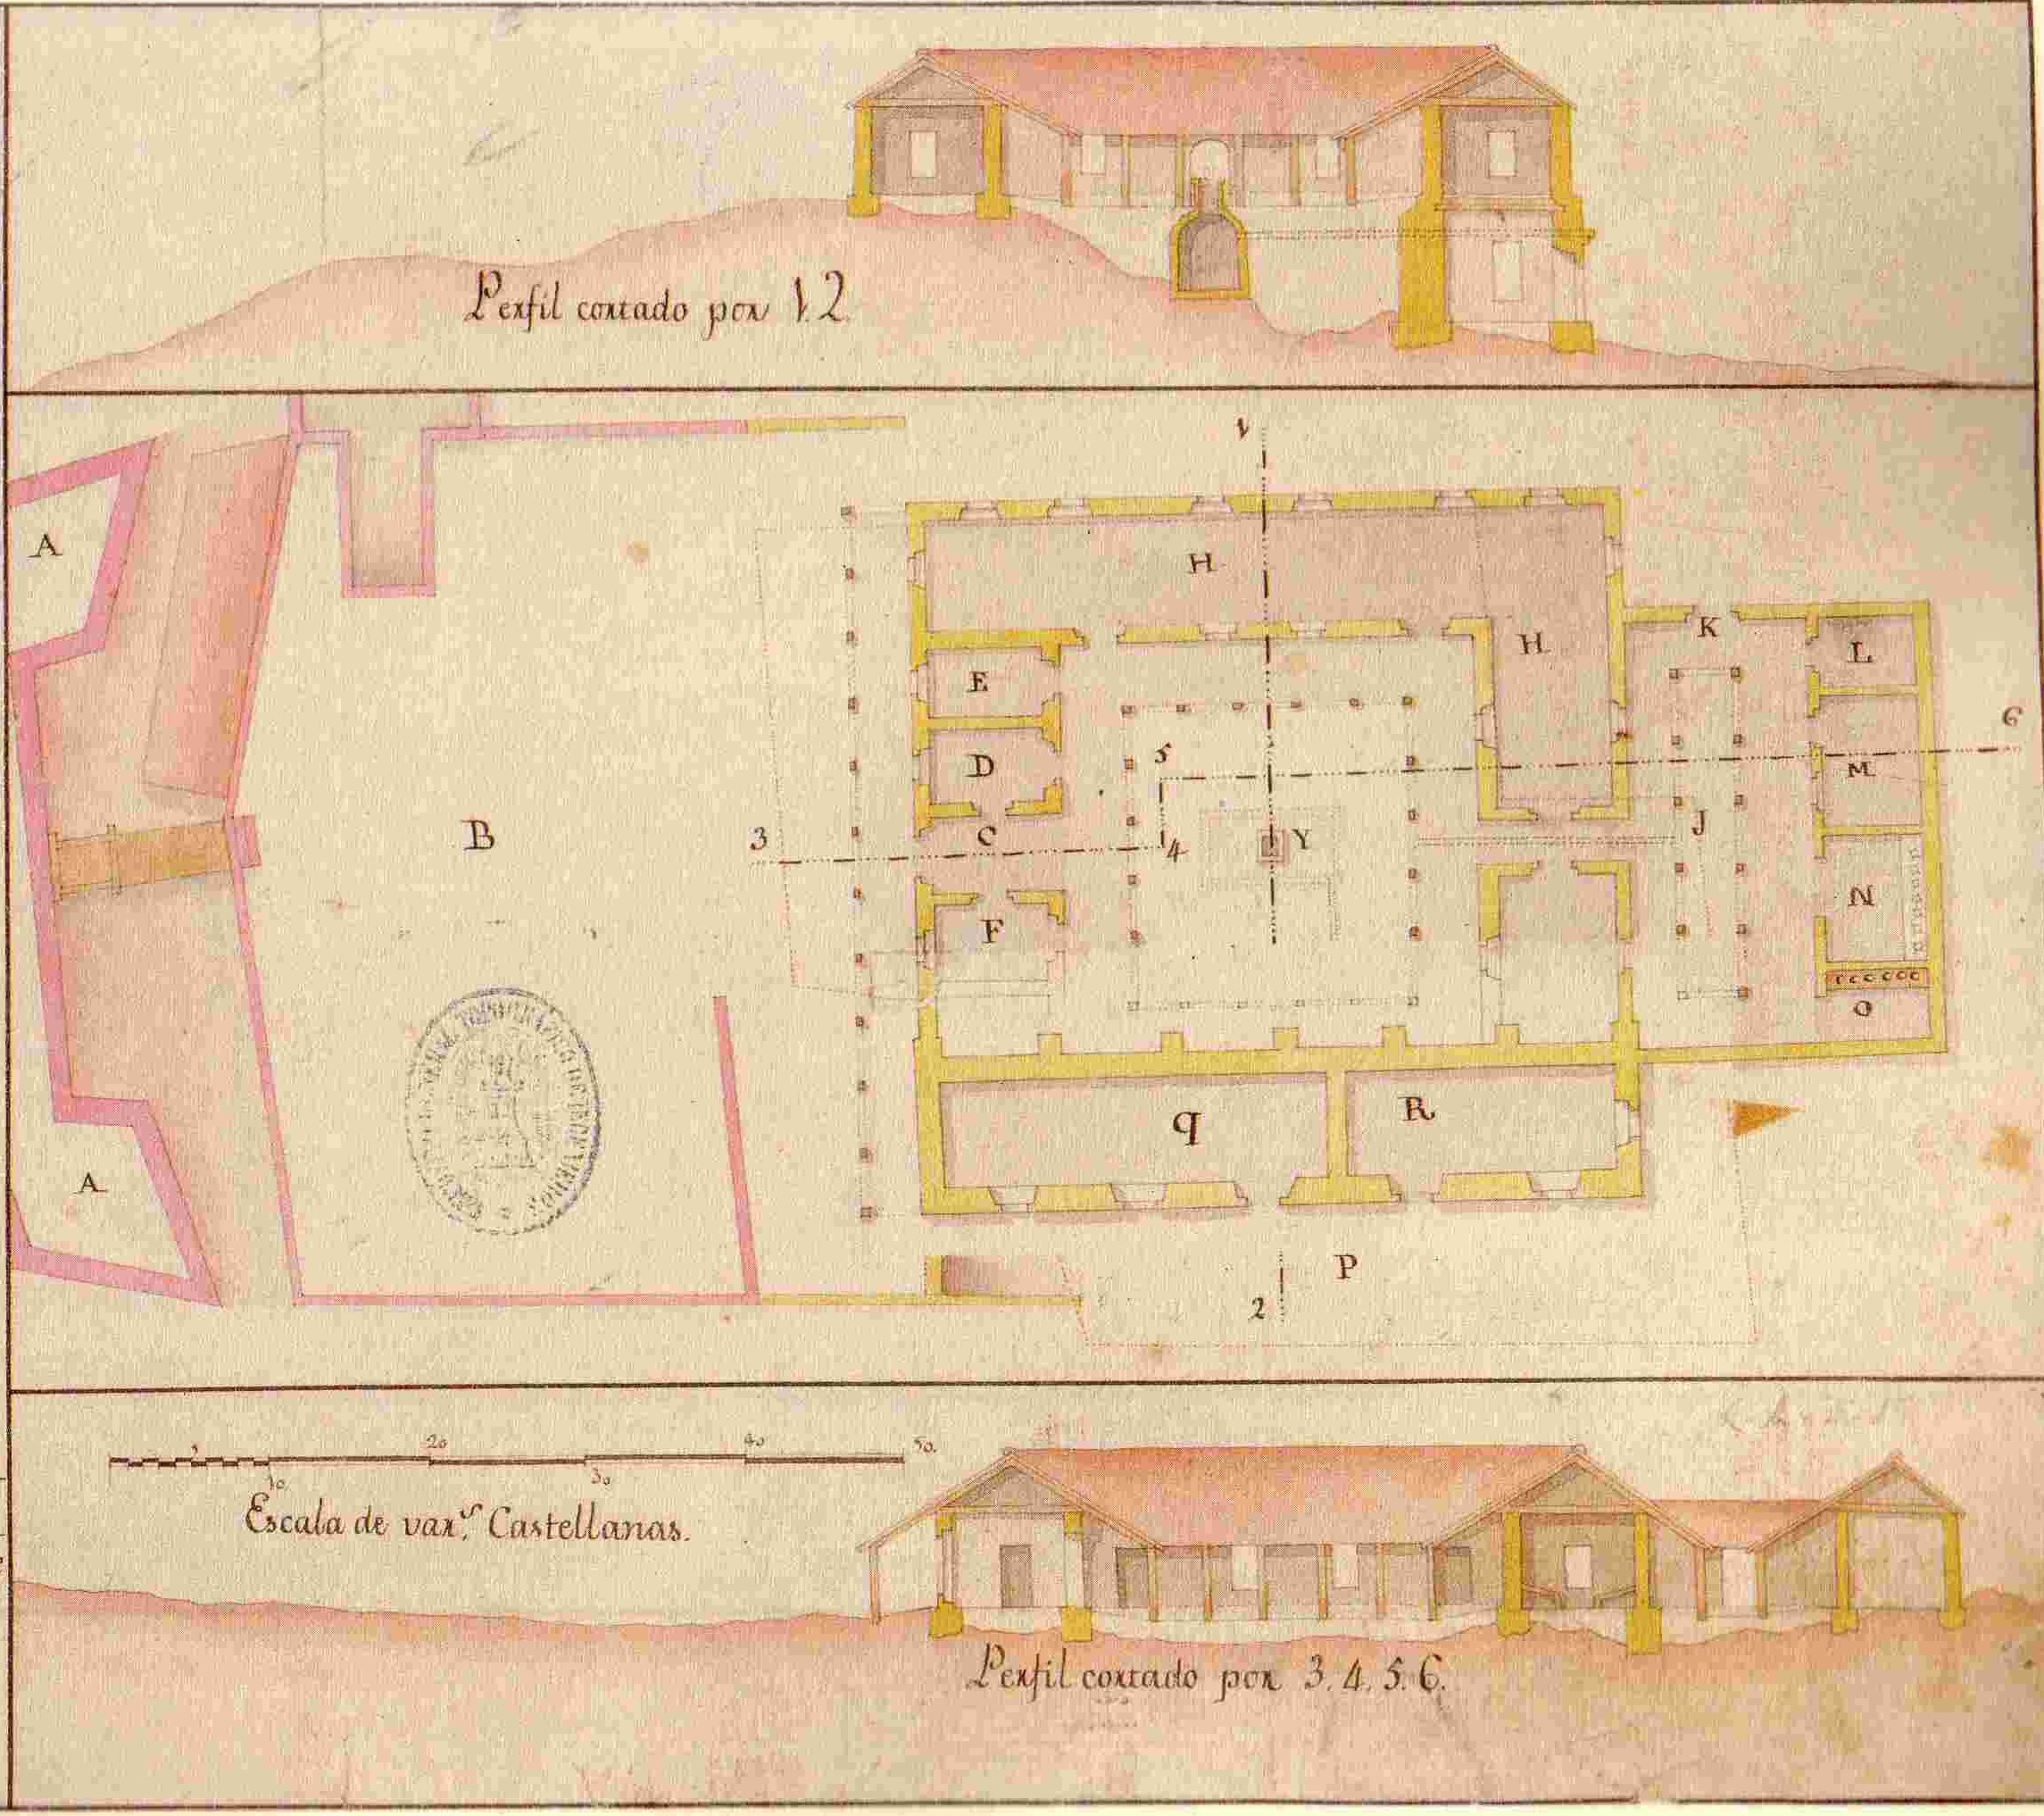 Perfil cortado por 1.2.
1
A
H
H
K
L
E
6
5
D
M
B
3
C
4
Y
J
F
N
O
A
q
R
P
2
5
20
40
50.
10
30
Escala de var.s Castellanas.
Perfil cortado por 3.4.5.6.